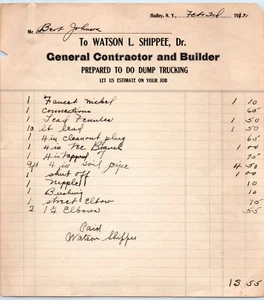 Hadley, N. Y., Feb 3rd 1931
Mr Bert Johnson
To WATSON L. SHIPPEE, Dr.
General Contractor and Builder
PREPARED TO DO DUMP TRUCKING
LET US ESTIMATE ON YOUR JOB
1 Faucet Nickel 1 10
1 Connections 50
1 Lead Ferrules 50
10 lb lead 1 50
1 4 in Cleanout plug 65
1 4 in Tee Branch 1
1 4 in Tapped T 75
9ft 4 in Soil pipe 4 50
1 shut off 1
1 Nipple
1 Bushing 10
1 street Elbow 75
2 1¼ Elbows
Paid
Watson Shippee
13 55